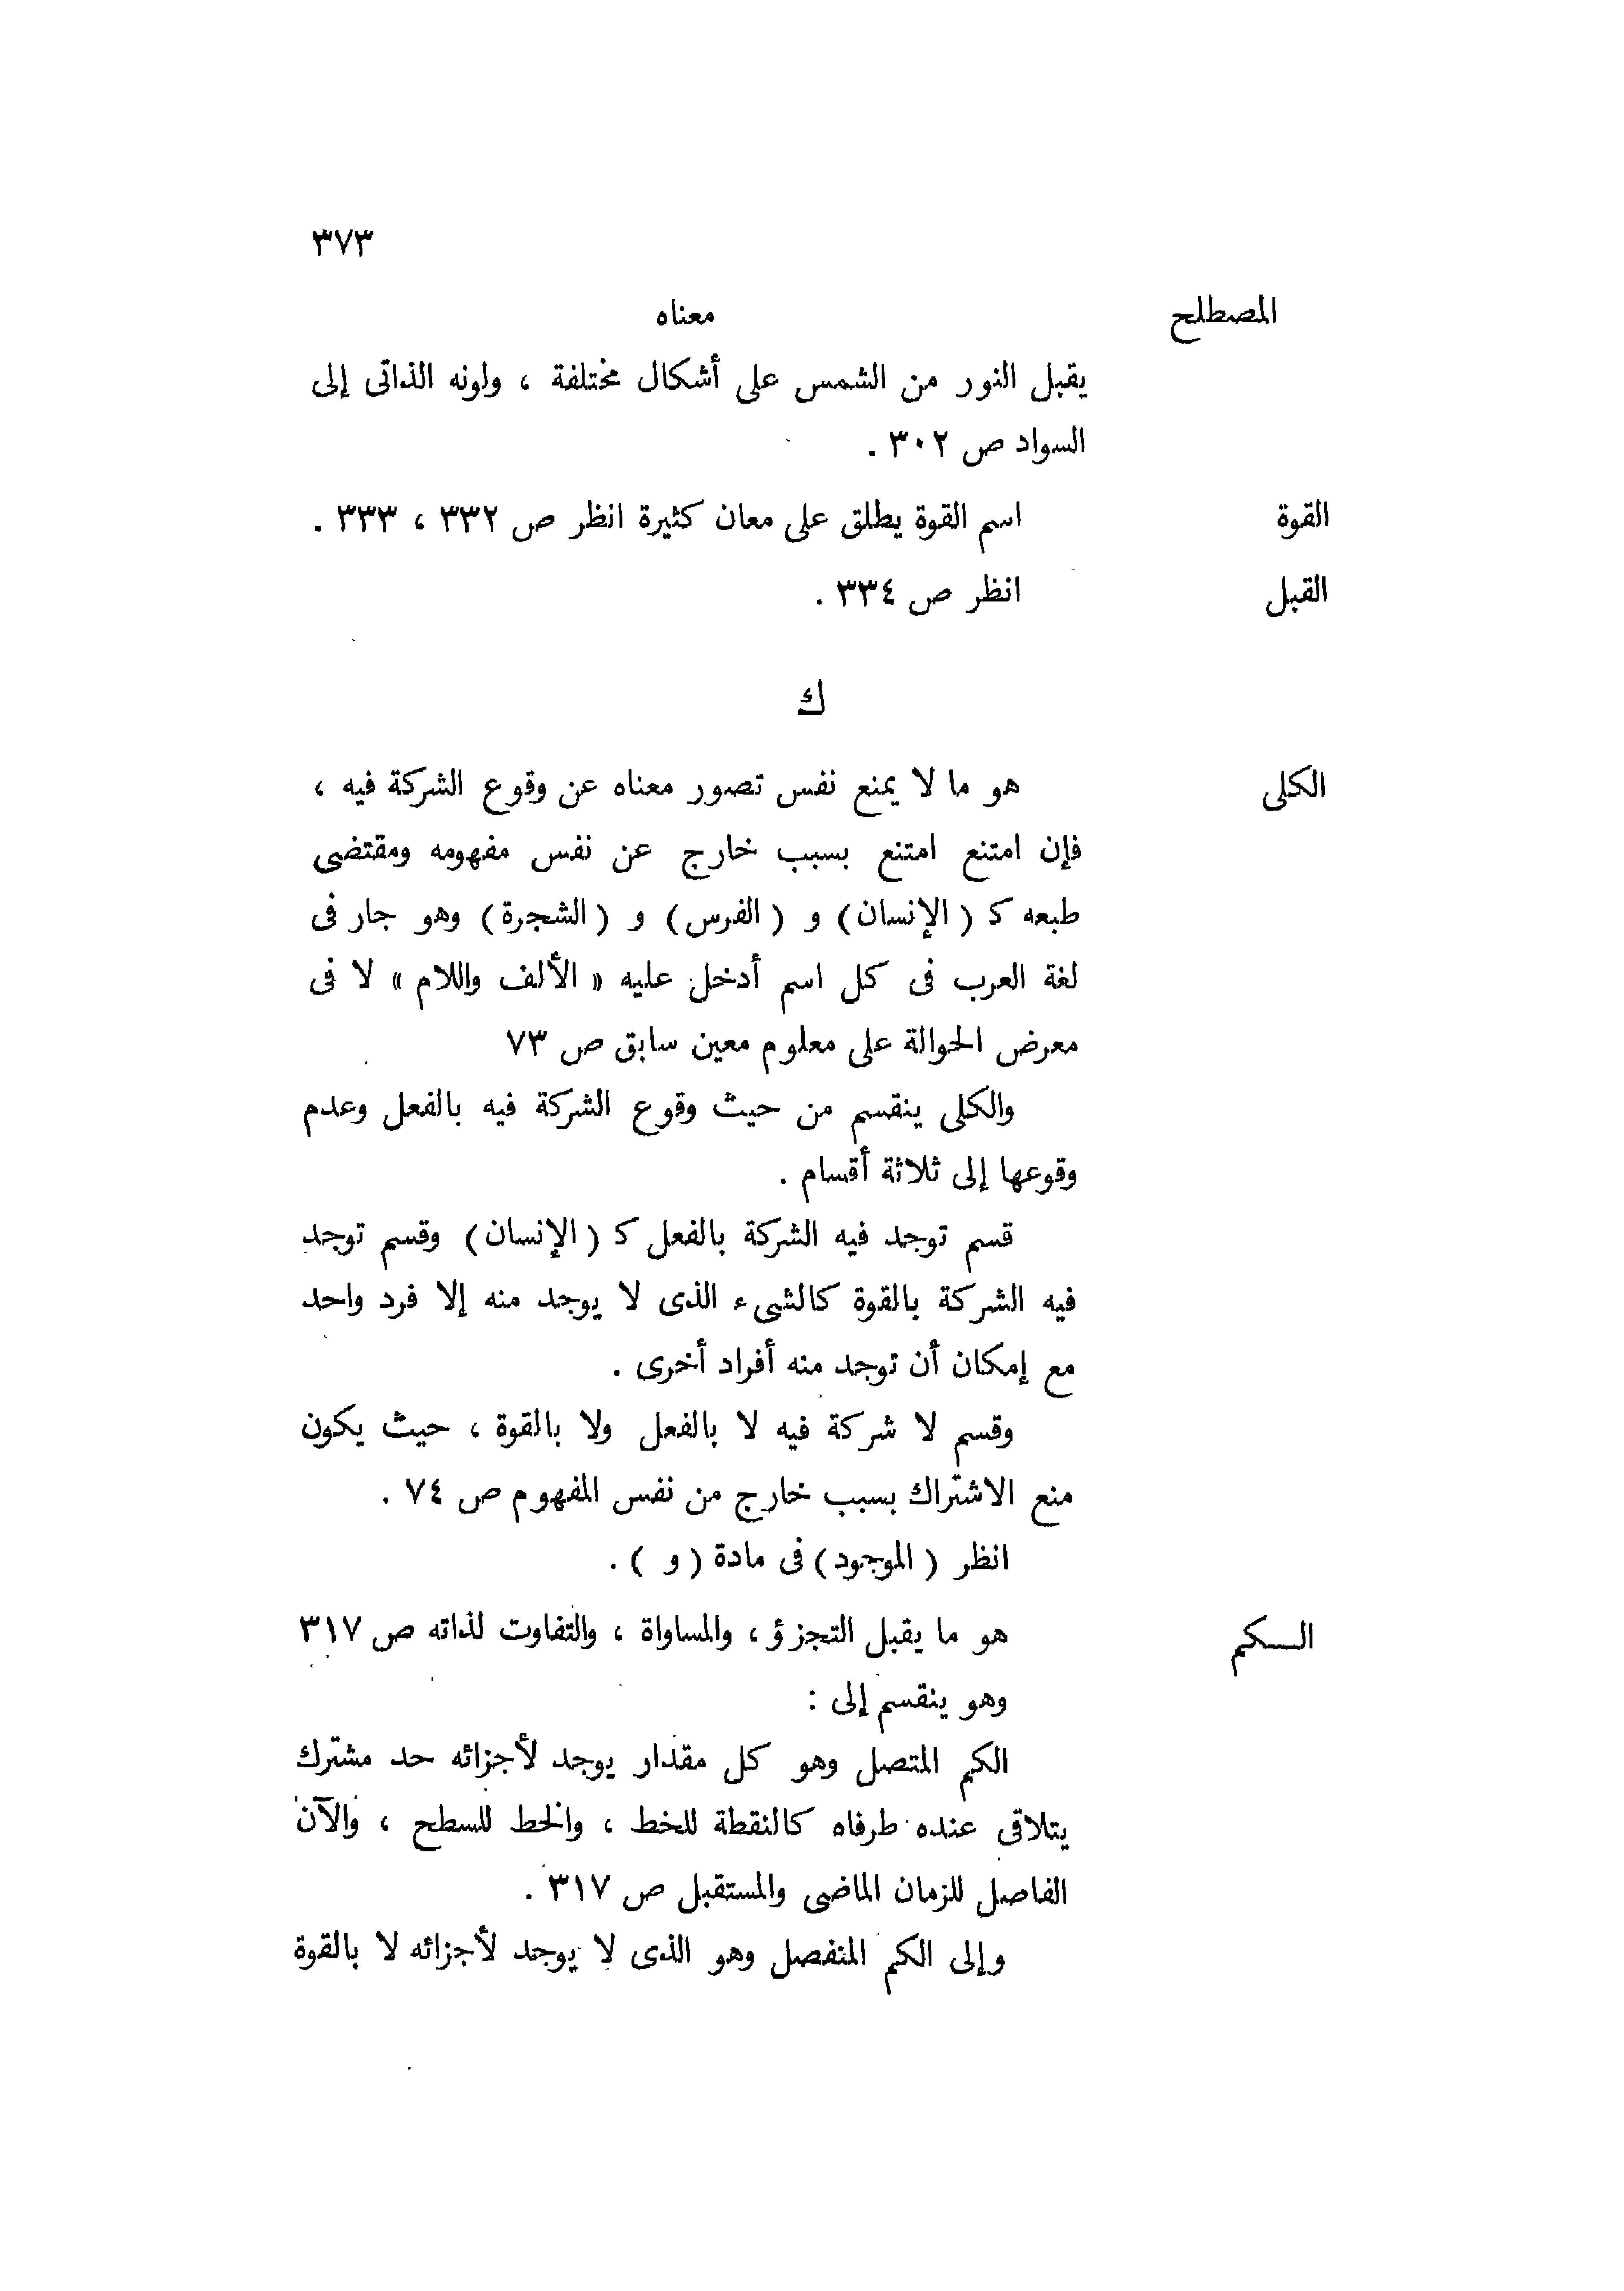 ٣٧٣
المصطلح معناه
يقبل النور من الشمس على أشكال مختلفة ، ولونه الذاتى إلى
السواد ص ٣٠٢ .
القوة اسم القوة يطلق على معان كثيرة انظر ص ٣٣٢ ، ٣٣٣ .
القبل انظر ص ٣٣٤ .
ك
الكلى هو ما لا يمنع نفس تصور معناه عن وقوع الشركة فيه ،
فإن امتنع امتنع بسبب خارج عن نفس مفهومه ومقتضى
طبعه كـ ( الإنسان ) و ( الفرس ) و ( الشجرة ) وهو جار فى
لغة العرب فى كل اسم أدخل عليه « الألف واللام » لا فى
معرض الحوالة على معلوم معين سابق ص ٧٣
والكلى ينقسم من حيث وقوع الشركة فيه بالفعل وعدم
وقوعها إلى ثلاثة أقسام .
قسم توجد فيه الشركة بالفعل كـ ( الإنسان ) وقسم توجد
فيه الشركة بالقوة كالشىء الذى لا يوجد منه إلا فرد واحد
مع إمكان أن توجد منه أفراد أخرى .
وقسم لا شركة فيه لا بالفعل ولا بالقوة ، حيث يكون
منع الاشتراك بسبب خارج من نفس المفهوم ص ٧٤ .
انظر ( الموجود ) فى مادة ( و ) .
الـكم هو ما يقبل التجزؤ ، والمساواة ، والتفاوت لذاته ص ٣١٧
وهو ينقسم إلى :
الكم المتصل وهو كل مقدار يوجد لأجزائه حد مشترك
يتلاقى عنده طرفاه كالنقطة للخط ، والخط للسطح ، والآن
الفاصل للزمان الماضى والمستقبل ص ٣١٧ .
وإلى الكم المنفصل وهو الذى لا يوجد لأجزائه لا بالقوة